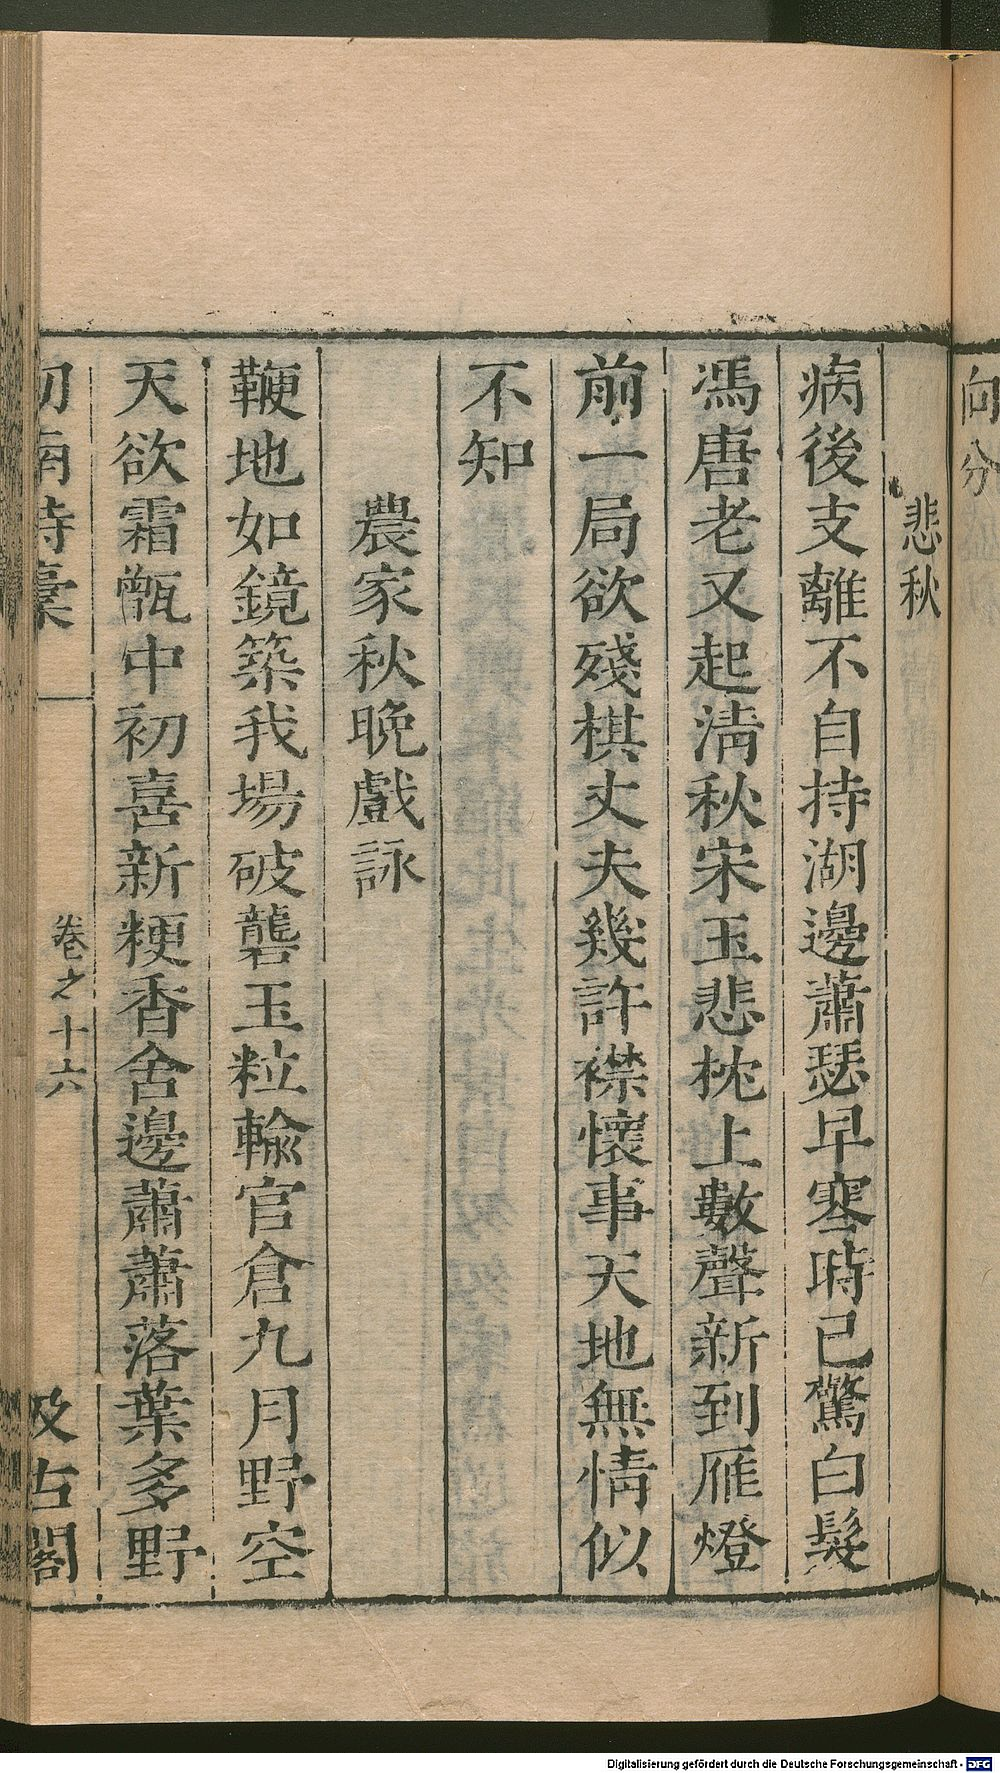 向分
悲秋
病後支離不自持湖邊蕭瑟早寒時已驚白髮
馮唐老又起清秋宋玉悲枕上數聲新到雁燈
前一局欲殘棋丈夫幾許襟懷事天地無情似
不知
農家秋晚戲詠
鞭地如鏡築我場破礱玉粒輸官倉九月野空
天欲霜甑中初喜新粳香舍邊蕭蕭落葉多野
劒南詩稾
卷之十六
汲古閣
Digitalisierung gefördert durch die Deutsche Forschungsgemeinschaft - DFG